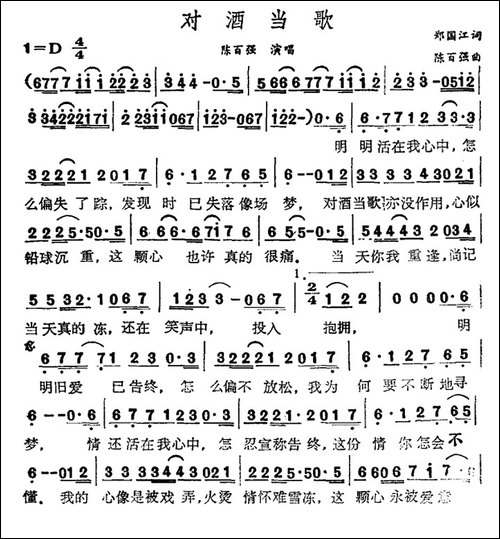 对酒当歌
1=D 4/4
陈百强 演唱
郑国江词
陈百强曲
(6777 i i i 2223 | 344-0·5 | 5666777 i | 233-0512
3342227 i | 223 i i 067 | i 23-067 | i 22-)0·6 | 6·771233·0
明 明活在我心中,怎
3222212017 | 6·12765 | 6--012 | 3333443021
么偏失了踪,发现 时 已失落像场 梦, 对酒当歌亦没作用,心似
2225·50·5 | 666·6777 | 65·5-0·5 | 5444432034
铅球沉 重,这 颗心 也许 真的 很痛。 当 天你我 重逢,尚记
5532·1067 | 1233-067 | 1. 2/4 122 | 0000·6
当天真的 冻,还在 笑声中, 投入 抱拥, 明
67771230·3 | 3222212017 | 6·12765
明旧爱 已告终, 怎 么偏不 放松,我为 何 要不断地寻
6--0·6 | 67771230·3 | 3221·2017 | 6·12765
梦, 情 还活在我心中,怎 忍宣称告终,这份 情 你怎会不
6--012 | 3333443021 | 22225·50·5 | 66067 i 7
懂。 我的 心像是被戏 弄,火烫 情怀难雪冻,这 颗心永被爱